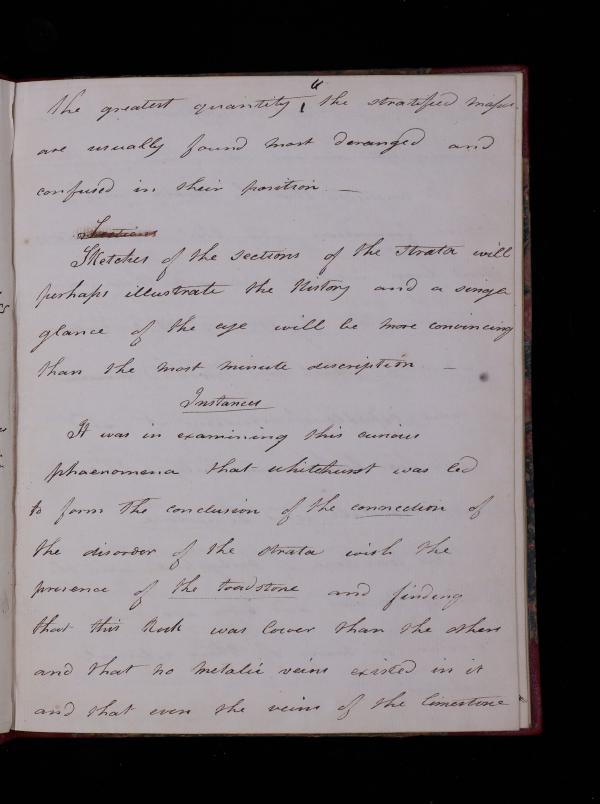 the greatest quantity, the stratified masses
are usually found most deranged and
confused in their position —
Sections
Sketches of the sections of the strata will
perhaps illustrate the History and a single
glance of the eye will be more convincing
than the most minute description —
Instances
It was in examining this curious
phaenomena that whitehurst was led
to form the conclusion of the connection of
the disorder of the strata with the
presence of the toadstone and finding
that this Rock was lower than the others
and that no metalic veins existed in it
and that even the veins of the limestone